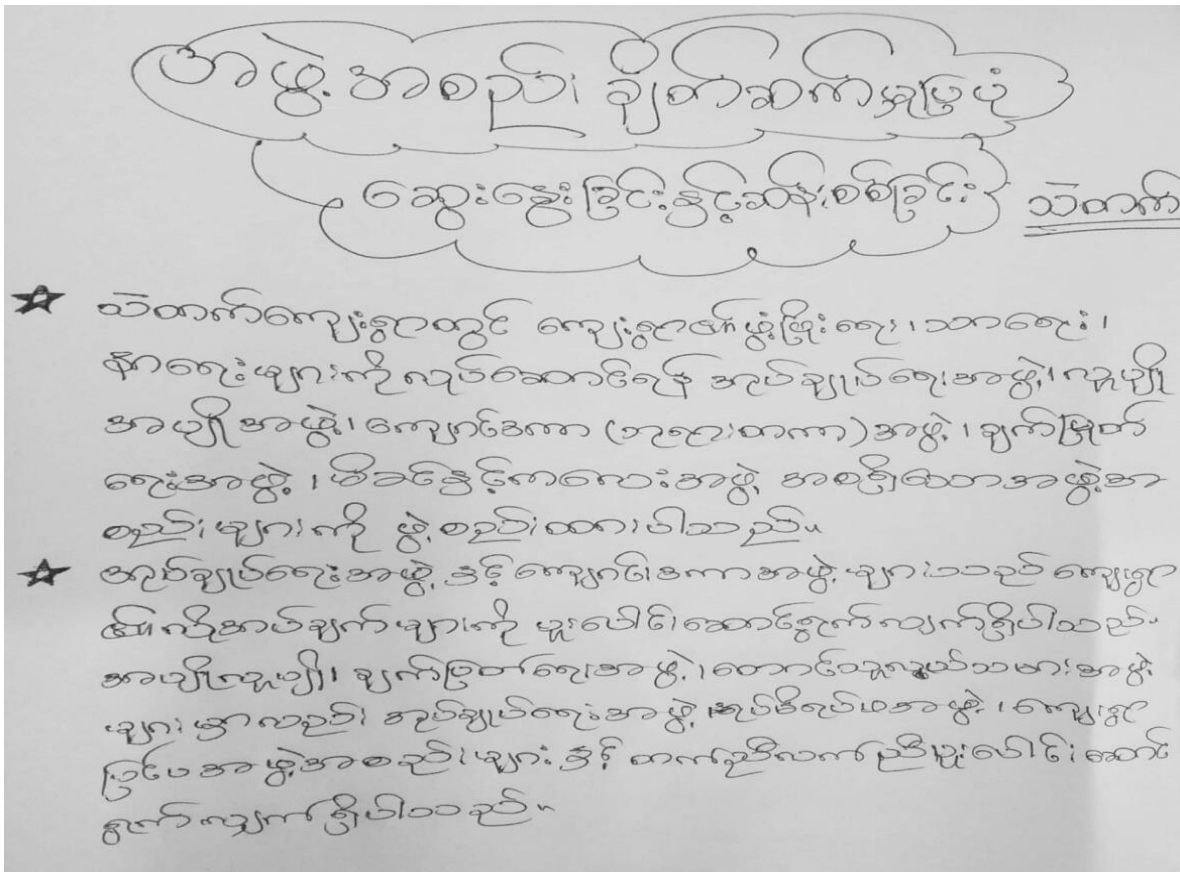 အဖွဲ့အစည်း ချိတ်ဆက်မှုပြပုံ
ဆွေးနွေးခြင်းနှင့်ဆန်းစစ်ခြင်း
သဲတက်
သဲတက်ကျေးရွာတွင် ကျေးရွာဖွံ့ဖြိုးရေး၊ သာရေး၊
နာရေးများကိုလုပ်ဆောင်ရန် အုပ်ချုပ်ရေးအဖွဲ့၊ လူပျို
အပျိုအဖွဲ့၊ ကျောင်းဒကာ (ဘုရားတကာ) အဖွဲ့၊ ချက်ပြုတ်
ရေးအဖွဲ့၊ မိခင်နှင့်ကလေးအဖွဲ့ အစရှိသောအဖွဲ့အ
စည်းများကို ဖွဲ့စည်းထားပါသည်။
အုပ်ချုပ်ရေးအဖွဲ့ နှင့် ကျောင်းဒကာအဖွဲ့များသည် ကျေးရွာ
၏လိုအပ်ချက်များကို ပူးပေါင်းဆောင်ရွက်လျက်ရှိပါသည်။
အပျိုလူပျို၊ ချက်ပြုတ်ရေးအဖွဲ့၊ တောင်သူလယ်သမားအဖွဲ့
များမှာလည်း အုပ်ချုပ်ရေးအဖွဲ့၊ ရပ်မိရပ်ဖအဖွဲ့၊ ကျေးရွာ
ပြင်ပအဖွဲ့အစည်းများနှင့် တက်ညီလက်ညီပူးပေါင်းဆောင်
ရွက်လျှက်ရှိပါသည်။